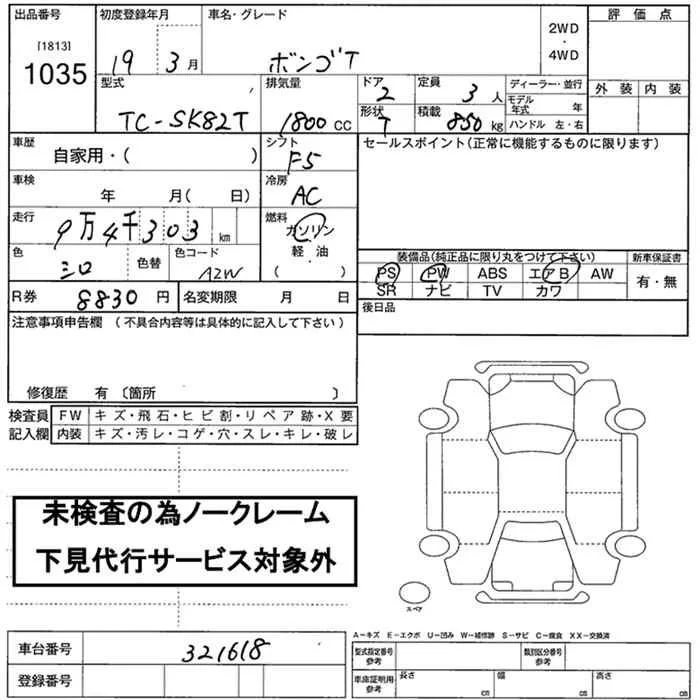 出品番号 初度登録年月 車名・グレード 評価点
[1813]
1035
19 3月 ボンゴT 2WD・4WD
外装 内装
型式 排気量 ドア 定員 ディーラー・並行
TC-SK82T 1800CC 2 3人 モデル年式 年
形状 積載 ハンドル 左・右
T 850kg
車歴 シフト セールスポイント(正常に機能するものに限ります)
自家用・( ) F5
車検 冷房
年 月( 日) AC
走行 燃料
9万4千303km ガソリン
軽・油
( )
色 色替 色コード
シロ A2W
装備品(純正品に限り丸をつけて下さい) 新車保証書
PS PW ABS エアB AW 有・無
SR ナビ TV カワ
R券 8830円 名変期限 月 日
後日品
注意事項申告欄(不具合内容等は具体的に記入して下さい)
修復歴 有〔箇所 〕
検査員 FW キズ・飛石・ヒビ割・リペア跡・X要
記入欄 内装 キズ・汚レ・コゲ・穴・スレ・キレ・破レ
未検査の為ノークレーム
下見代行サービス対象外
スペア
A−キズ E−エクボ U−凹み W−補修跡 S−サビ C−腐食 XX−交換済
車台番号 321618
登録番号
型式指定番号 参考 類別区分番号 参考
車庫証明用 参考 長さ cm 幅 cm 高さ cm